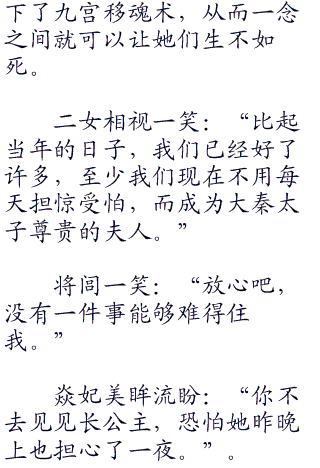 下了九宫移魂术，从而一念
之间就可以让她们生不如
死。
二女相视一笑：“比起
当年的日子，我们已经好了
许多，至少我们现在不用每
天担惊受怕，而成为大秦太
子尊贵的夫人。”
将闾一笑：“放心吧，
没有一件事能够难得住
我。”
焱妃美眸流盼：“你不
去见见长公主，恐怕她昨晚
上也担心了一夜。”。